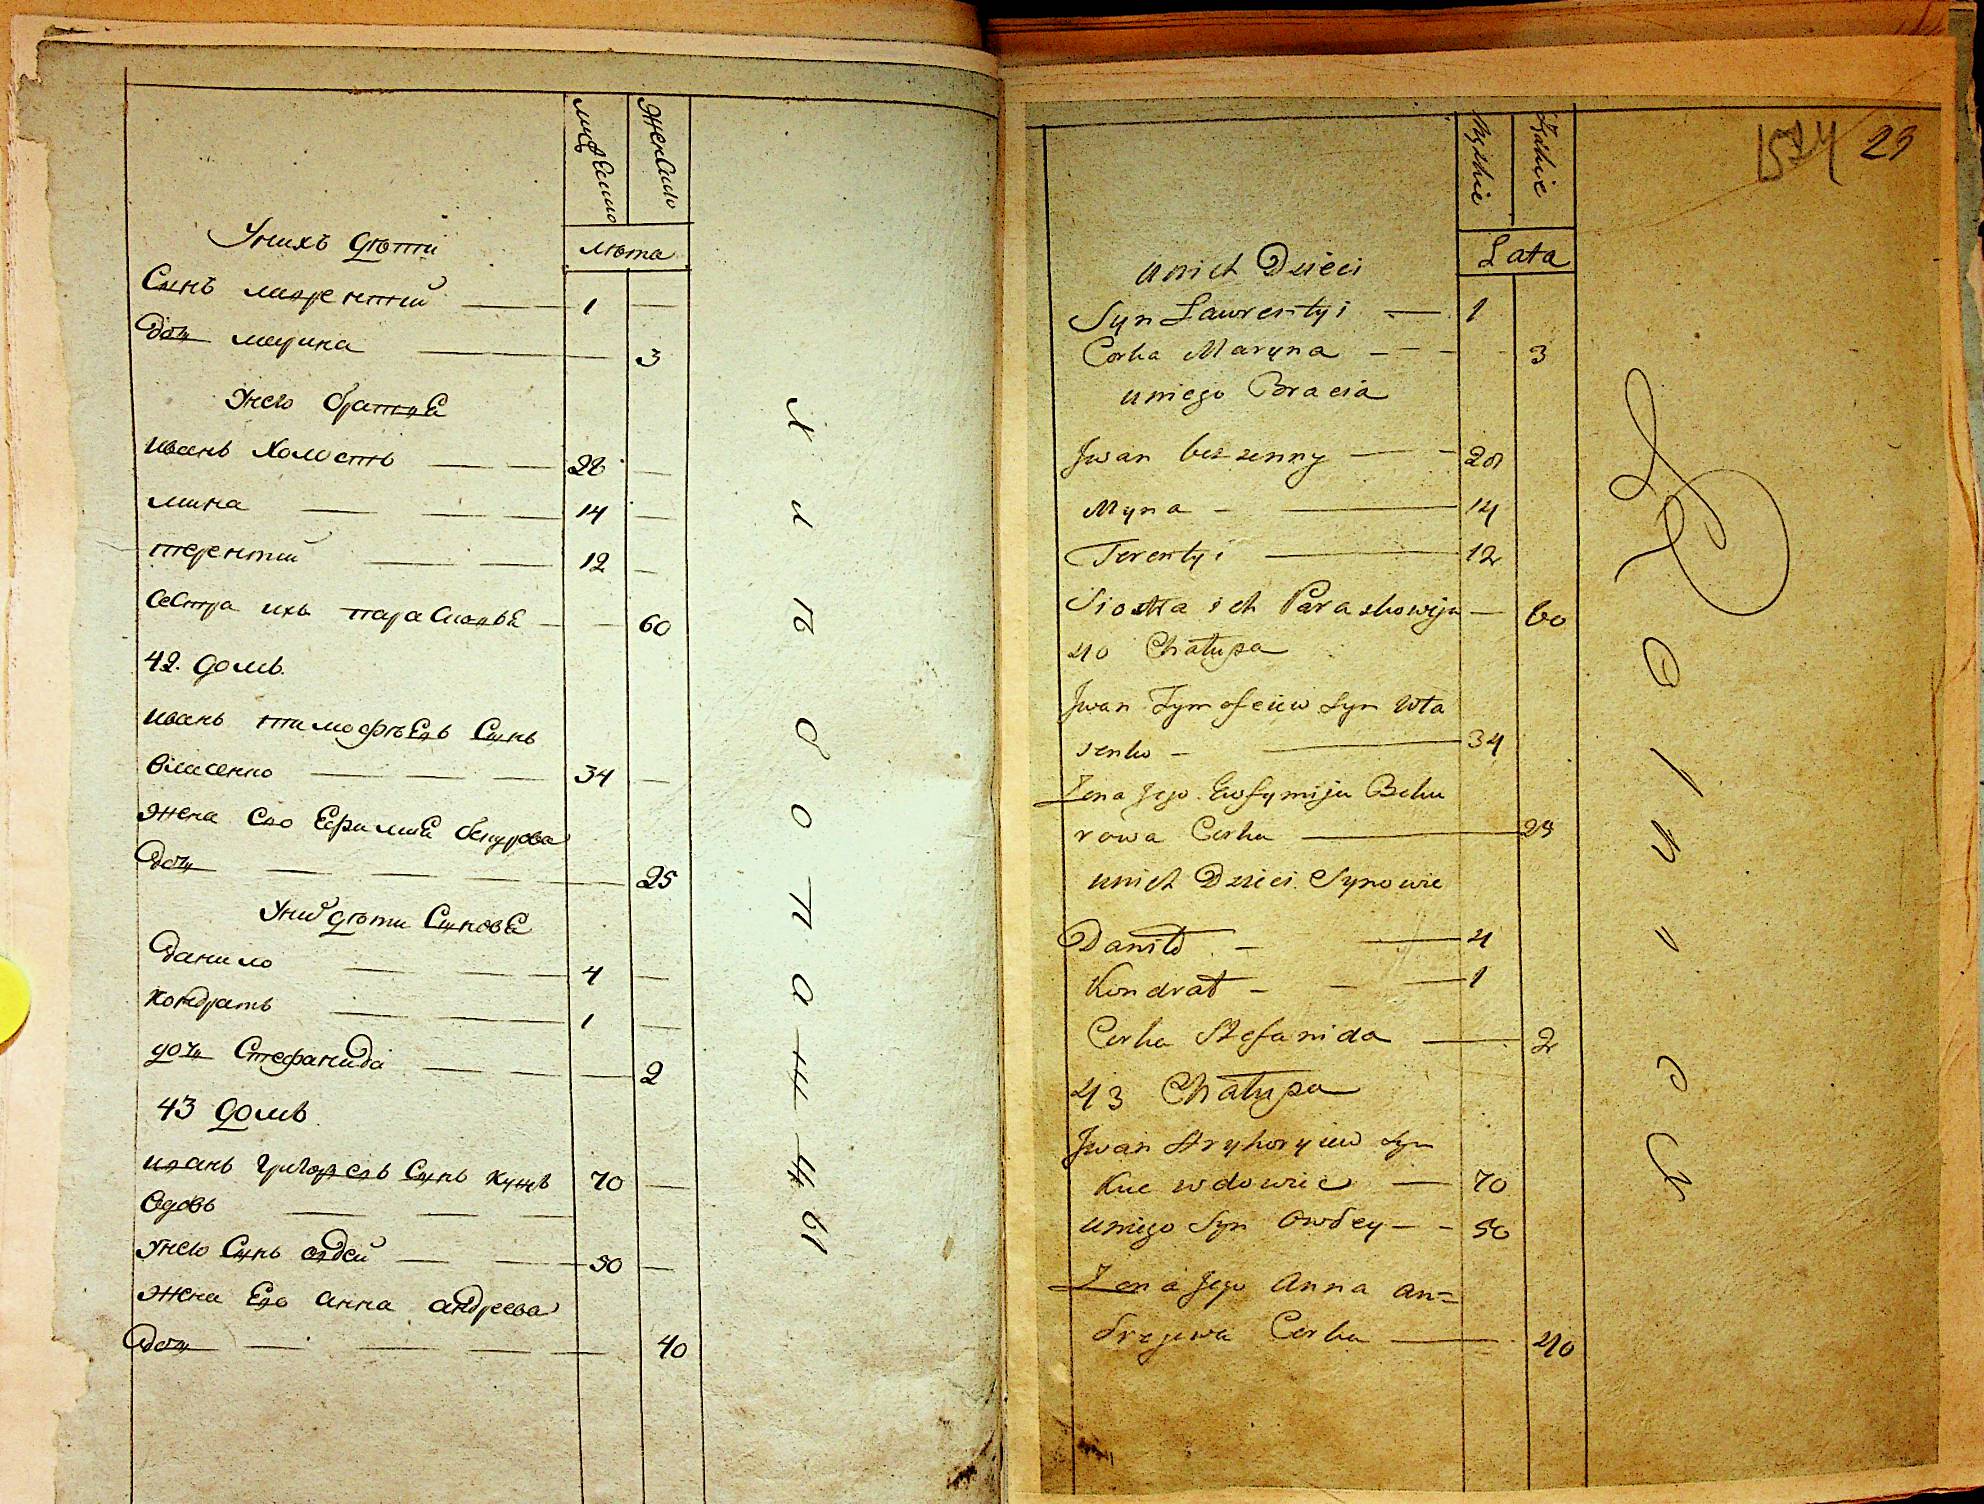 мужеско
женско
лѣта
Унихъ дѣти
Сынъ лаврентий 1
дочь марина 3
Унего братья
иванъ холостъ 28
мина 14
терентий 12
Сестра ихъ парасковья 60
42. домъ.
иванъ тимофѣевъ Сынъ
власенко 34
жена его Ефимия бекурова
дочь 25
Унихъ дѣти Сыновья
данило 4
кондратъ 1
дочь Стефанида 2
43 домъ
иванъ григорьевъ Сынъ куцъ 70
вдовъ
Унего Сынъ авдей 50
жена Его анна андреева
дочь 40
1574 23
Męzkie
Żeńskie
Lata
unich Dzieci
Syn Lawrentyi 1
Corka Maryna 3
uniego Bracia
Jwan bezzenny 28
Myna 14
Terentyi 12
Siostra ich Paraskowija 60
40 Chałupa
Jwan Tymofeiiw Syn Wła
senko 34
Żena Jego Ewfymija Beku
rowa Corka 25
unich Dzieci Synowie
Daniło 4
Kondrat 1
Corka Stefanida 2
43 Chałupa
Jwan Hryhoryiew Syn
Kuc wdowiec 70
uniego Syn Owdey 50
Żena Jego Anna An=
drejewa Corka 40